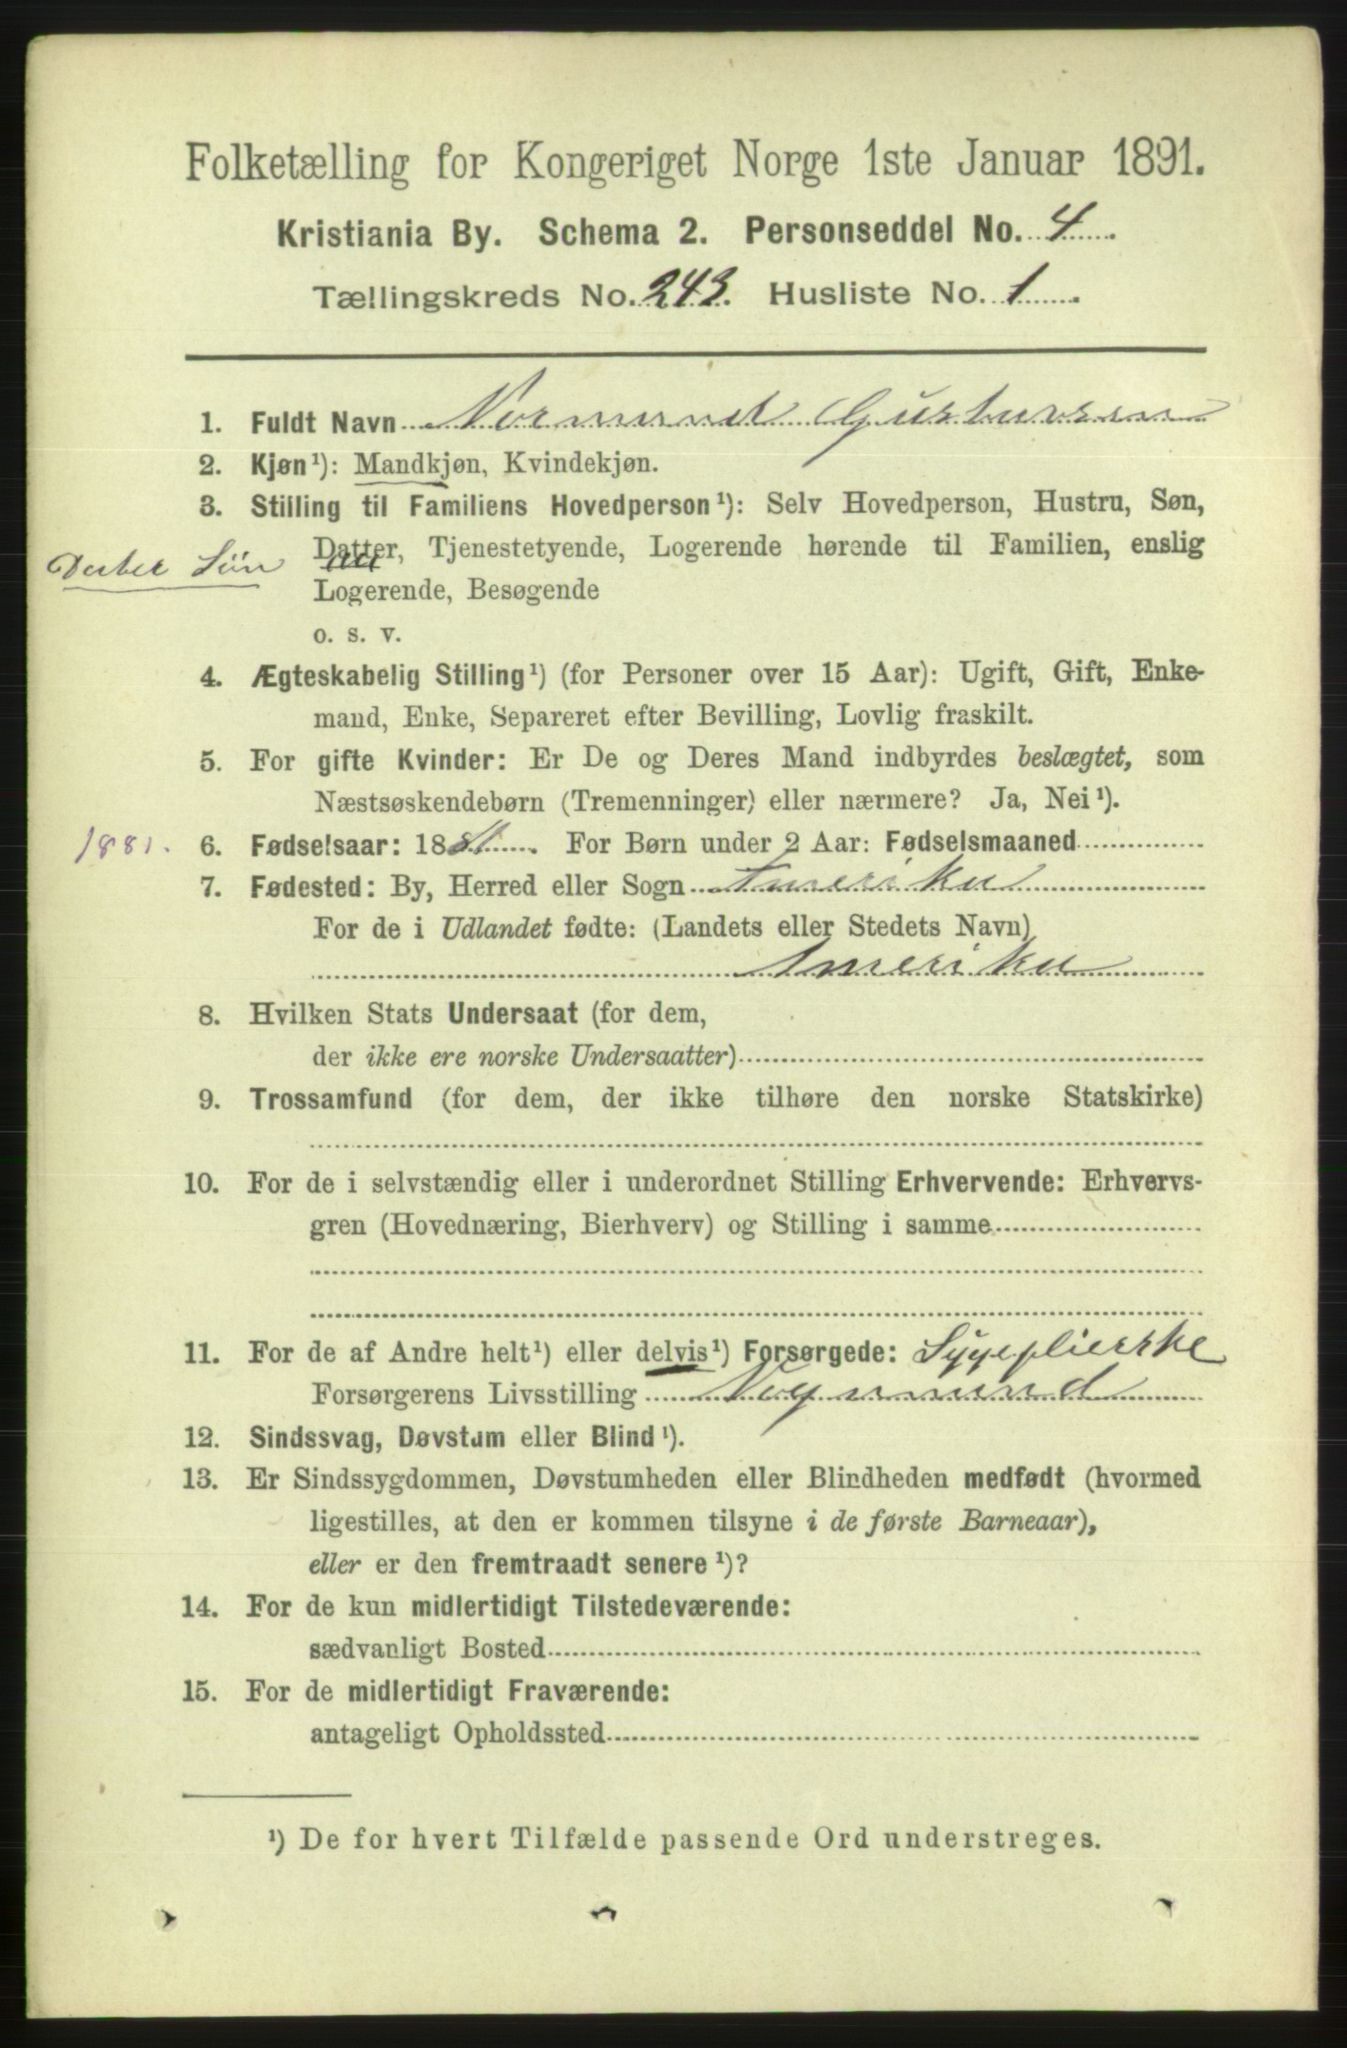 Folketælling for Kongeriget Norge 1ste Januar 1891.
Kristiania By. Schema 2. Personseddel No. 4
Tællingskreds No. 243. Husliste No. 1
1. Fuldt Navn Normand Gustavsen
2. Kjøn¹): Mandkjøn, Kvindekjøn.
3. Stilling til Familiens Hovedperson¹): Selv Hovedperson, Hustru, Søn,
Datter, Tjenestetyende, Logerende hørende til Familien, enslig
Datter Søn
Logerende, Besøgende
o. s. v.
4. Ægteskabelig Stilling¹) (for Personer over 15 Aar): Ugift, Gift, Enke-
mand, Enke, Separeret efter Bevilling, Lovlig fraskilt.
5. For gifte Kvinder: Er De og Deres Mand indbyrdes beslægtet, som
Næstsøskendebørn (Tremenninger) eller nærmere? Ja, Nei¹).
1881. 6. Fødselsaar: 1881. For Børn under 2 Aar: Fødselsmaaned
7. Fødested: By, Herred eller Sogn Amerika
For de i Udlandet fødte: (Landets eller Stedets Navn)
Amerika
8. Hvilken Stats Undersaat (for dem,
der ikke ere norske Undersaatter)
9. Trossamfund (for dem, der ikke tilhøre den norske Statskirke)
10. For de i selvstændig eller i underordnet Stilling Erhvervende: Erhvervs-
gren (Hovednæring, Bierhverv) og Stilling i samme
11. For de af Andre helt¹) eller delvis¹) Forsørgede: Sygeplierske
Forsørgerens Livsstilling Vognmand
12. Sindssvag, Døvstum eller Blind¹).
13. Er Sindssygdommen, Døvstumheden eller Blindheden medfødt (hvormed
ligestilles, at den er kommen tilsyne i de første Barneaar),
eller er den fremtraadt senere¹)?
14. For de kun midlertidigt Tilstedeværende:
sædvanligt Bosted
15. For de midlertidigt Fraværende:
antageligt Opholdssted
¹) De for hvert Tilfælde passende Ord understreges.